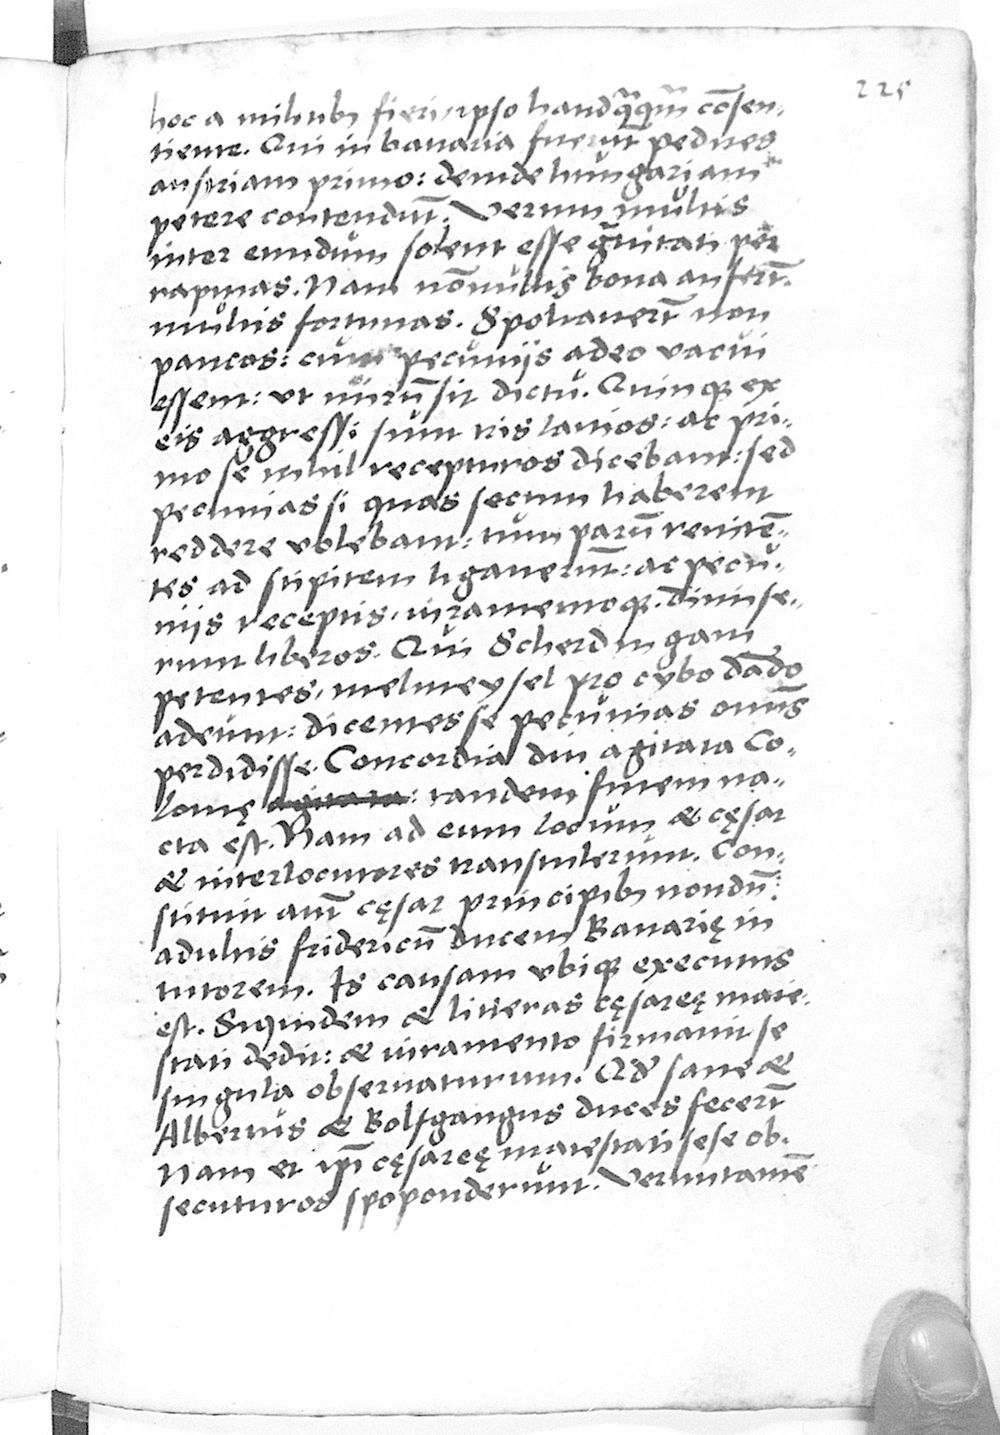 225
hoc a militib9 fieri, ipso haudq̃q̃m cōsen-
tiente. Qui in bauaria fuerūt pedites
austriam primo: deinde hungariam
petere contendūt. Verum multis
inter eundum solent esse g̃uitati per
rapinas. Nam nōnullis bona auferūt.
multis fortunas. Spoliauerūt non
paucos: cum pecunijs adeo vacui
essent: vt mirū sit dictu. Quinq3 ex
eis aggressi sunt tris lanios: ac pri-
mo se nihil recepturos dicebant: sed
pecunias si quas secum haberent
reddere volebant: tum parū reniten-
tes ad stipitem ligauerūt: ac pecu-
nijs receptis, iuramentoq3. dimise-
runt liberos. Qui Scherdingam
petentes, melmeysel pro cybo dādo
adeunt: dicentes se pecunias omīs
perdidisse. Concordia diu agitata Co-
lonię agitata: tandem finem na-
cta est. Nam ad eum locum & cęsar
& interlocutores transtulerunt. Con-
stituit aut̄ cęsar principib9 nondū
adultis fridericū ducem Bauarię in
tutorem. Is causam vbiq3 executus
est. Siquidem & litteras cęsareę maie-
stati dedit: & iuramento firmauit se
singula obseruaturum. Qd̄ sane &
Albertus & Bolfgangus duces fecerūt
Nam et ip̄i cęsareę maiestati sese ob-
secuturos spoponderunt. Veruntamē